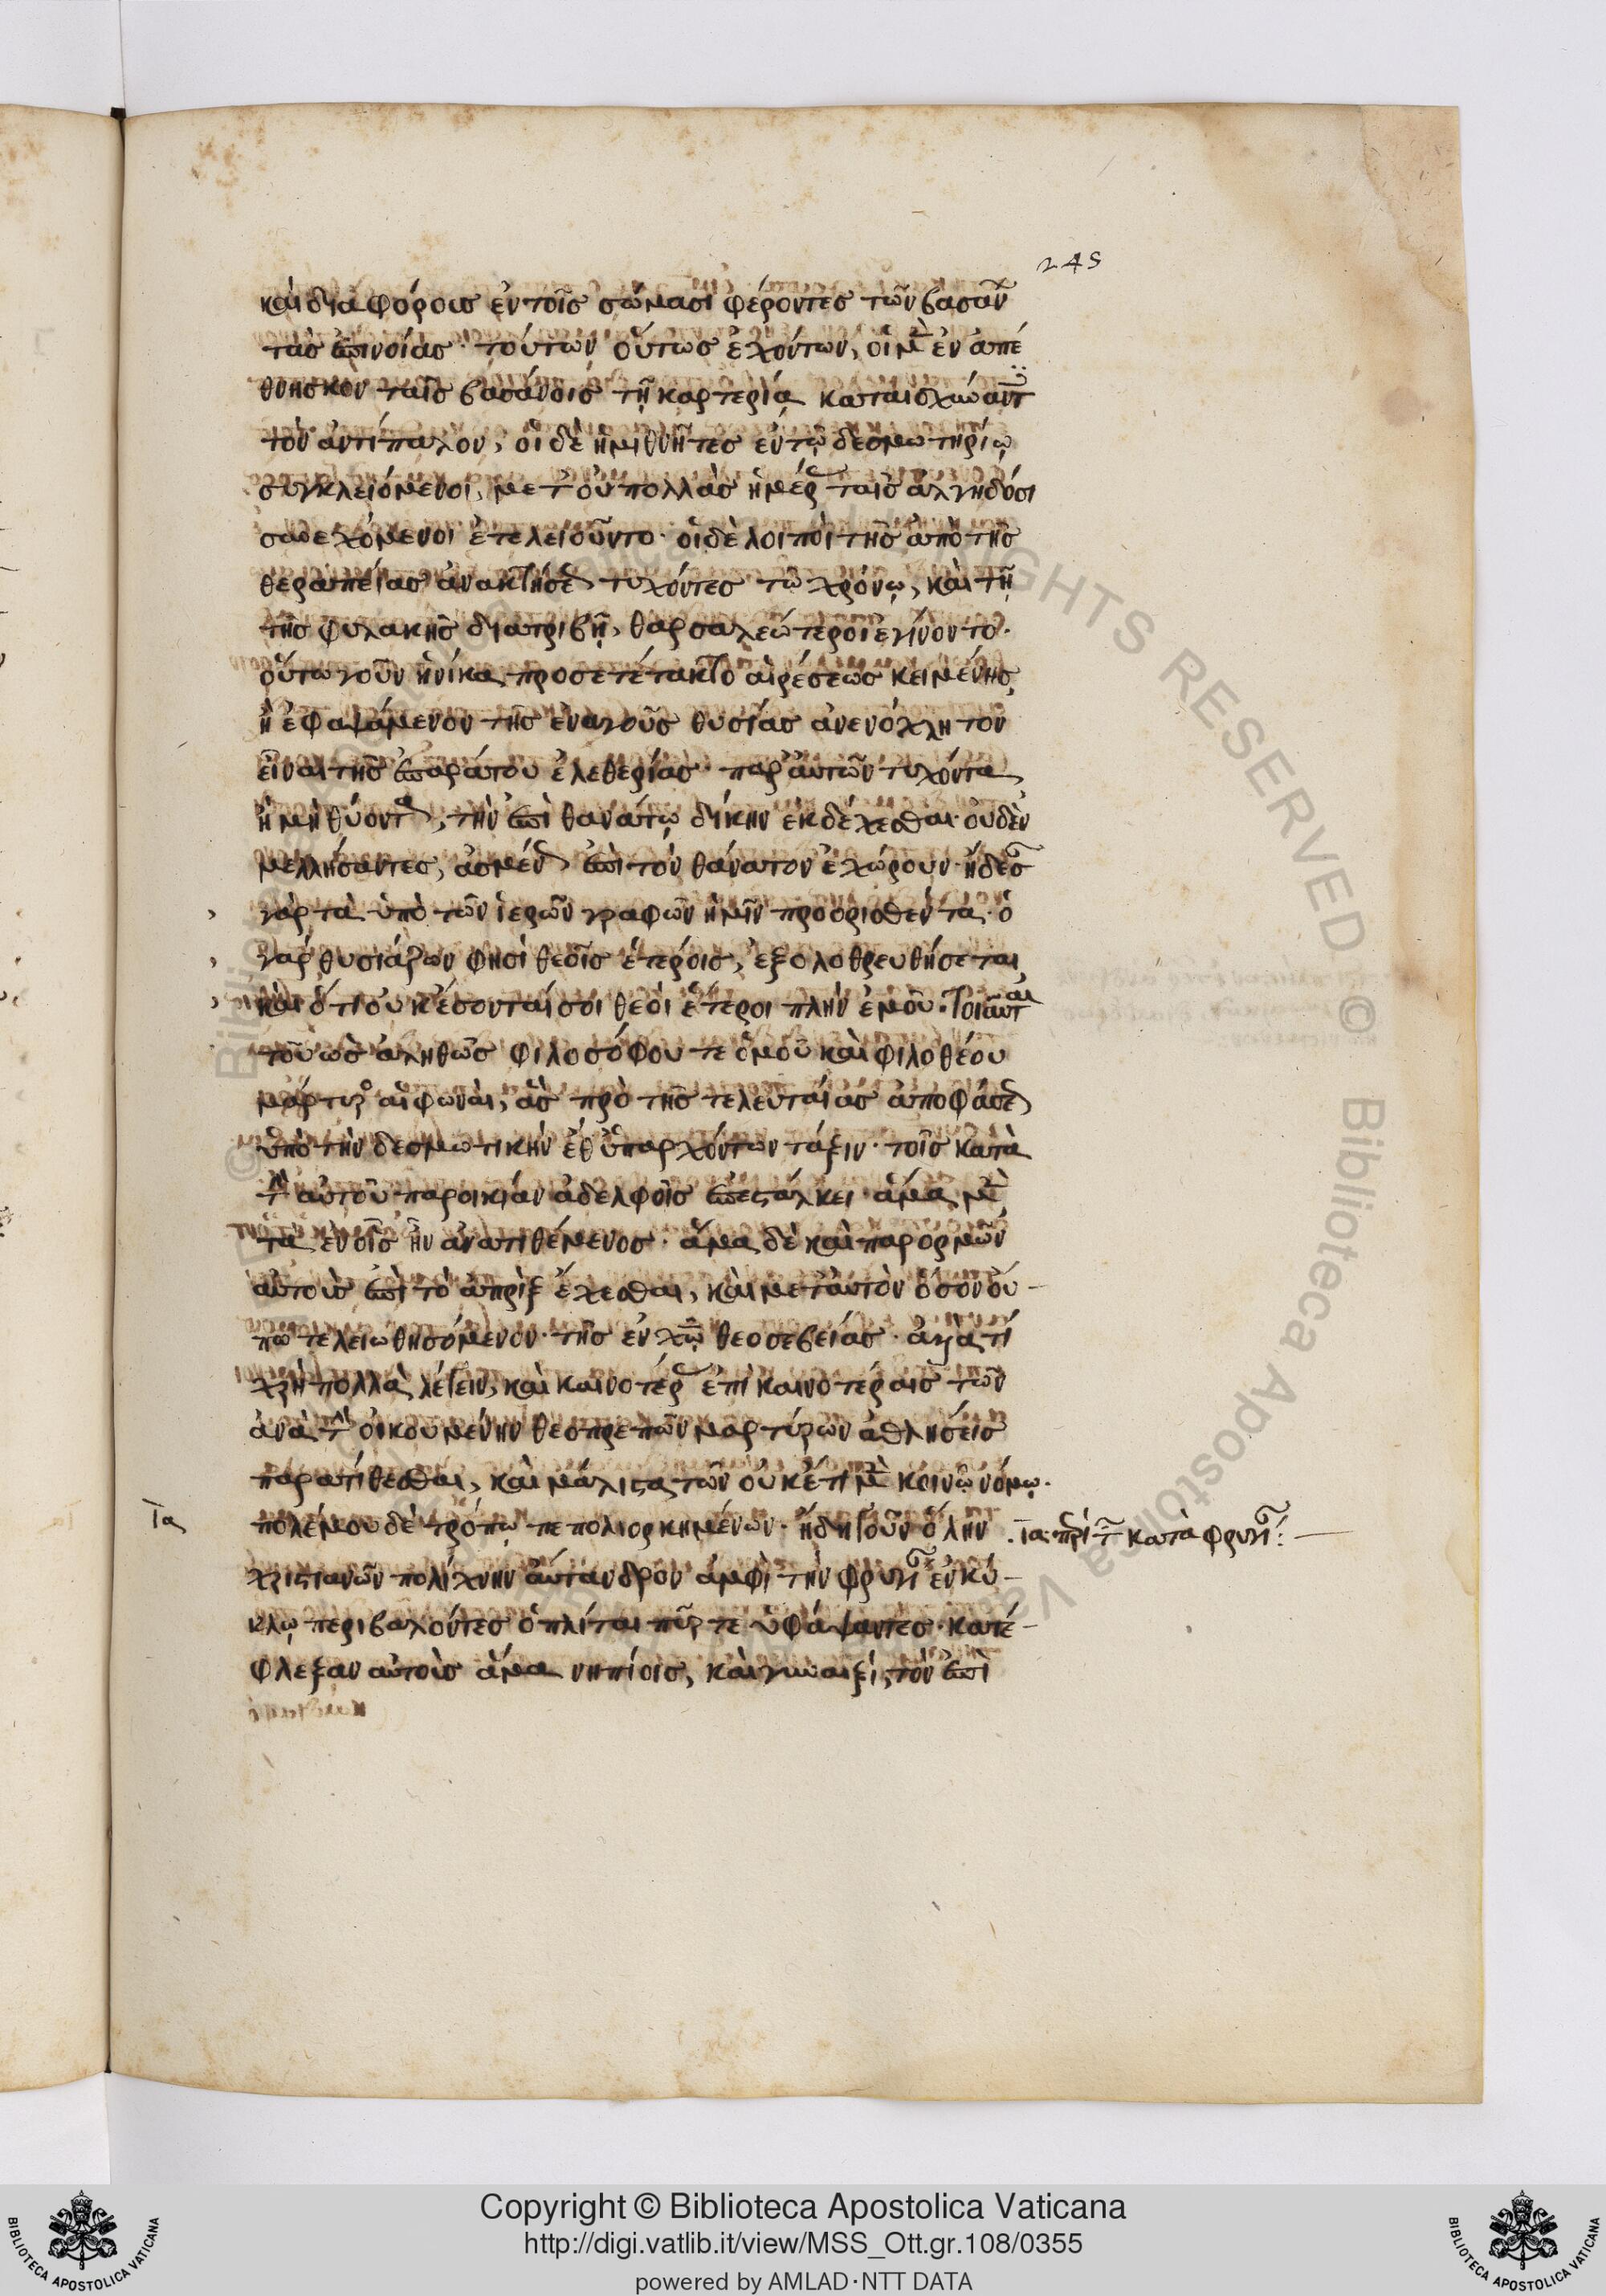 245
καὶ διαφόρους ἐν τοῖς σώμασι φέροντες τῶν βασάν
τὰς ἐπινοίας· τούτων οὕτως ἐχόντων, οἱ μὲν ἐναπέ
θνησκον ταῖς βασάνοις τῇ καρτερίᾳ καταισχύναντ
τὸν ἀντίπαλον, οἱ δὲ ἡμιθνῆτες ἐν τῷ δεσμωτηρίῳ
συγκλειόμενοι, μετ οὐ πολλὰς ἡμέρας ταῖς ἀλγηδόσι
συνεχόμενοι ἐτελειοῦντο· οἱ δὲ λοιποὶ τῆς ἀπὸ τῆς
θεραπείας ἀνακτήσεως τυχόντες τῷ χρόνῳ, καὶ τῇ
τῆς φυλακῆς διατριβῇ, θαρσαλεώτεροι ἐγίνοντο·
οὕτω γοῦν ἡνίκα προσετέτακτο αἱρέσεως κειμένης
ἢ ἐφαψάμενον τῆς ἐναγοῦς θυσίας ἀνενόχλητον
εἶναι τῆς ἐπαράτου ἐλεθερίας παρ αὐτῶν τυχόντα,
ἢ μὴ θύοντα, τὴν ἐπὶ θανάτῳ δίκην ἐκδέχεσθαι· οὐδὲν
μελλήσαντες, ἀσμένως ἐπὶ τὸν θάνατον ἐχώρουν· ᾔδεσαν
γὰρ τὰ ὑπὸ τῶν ἱερῶν γραφῶν ἡμῖν προορισθέντα· ὁ
γὰρ θυσιάζων φησὶ θεοῖς ἑτέροις, ἐξολοθρευθήσεται
καὶ ὅτι οὐκ ἔσονταί σοι θεοὶ ἕτεροι πλὴν ἐμοῦ· τοιαῦται
τοῦ ὡς ἀληθῶς φιλοσόφου τε ὁμοῦ καὶ φιλοθέου
μάρτυρος αἱ φωναὶ, ἃς πρὸ τῆς τελευταίας ἀποφάσεως
ὑπὸ τὴν δεσμωτικὴν ἔθ ὑπαρχόντων τάξιν· τοῖς κατὰ
τὴν αὐτοῦ παροικίαν ἀδελφοῖς ἐπεστάλκει· ἅμα μὲν
τὰ ἐν οἷς ἦν ἀνατιθέμενος· ἅμα δὲ καὶ παρορμῶν
αὐτοὺς ἐπὶ τὸ ἀπρὶξ ἔχεσθαι, καὶ μετ αὐτὸν ὅσον οὔ–
πω τελειωθησόμενον· τῆς ἐν χῷ θεοσεβείας· ἀλλὰ τί
χρὴ πολλὰ λέγειν, καὶ καινοτέρας ἐπὶ καινοτέραις τῶν
ἀνὰ τὴν οἰκουμένην θεοπρεπῶν μαρτύρων ἀθλήσεις
παρατίθεσθαι, καὶ μάλιστα τῶν οὐκέτι μὲν κοινῷ νόμῳ·
Ια πολέμου δὲ τρόπῳ πεπολιορκημένων· ἤδη γοῦν ὅλην ·ια· περὶ τῶν κατὰ φρυγίαν:–
χριστιανῶν πολίχνην αὔτανδρον ἀμφὶ τὴν φρυγίαν ἐν κύ–
κλῳ περιβαλόντες ὁπλῖται πῦρ τε ὑφάψαντες· κατέ–
φλεξαν αὐτοὺς ἅμα νηπίοις, καὶ γυναιξὶ, τὸν ἐπὶ
Copyright © Biblioteca Apostolica Vaticana
http://digi.vatlib.it/view/MSS_Ott.gr.108/0355
powered by AMLAD·NTT DATA